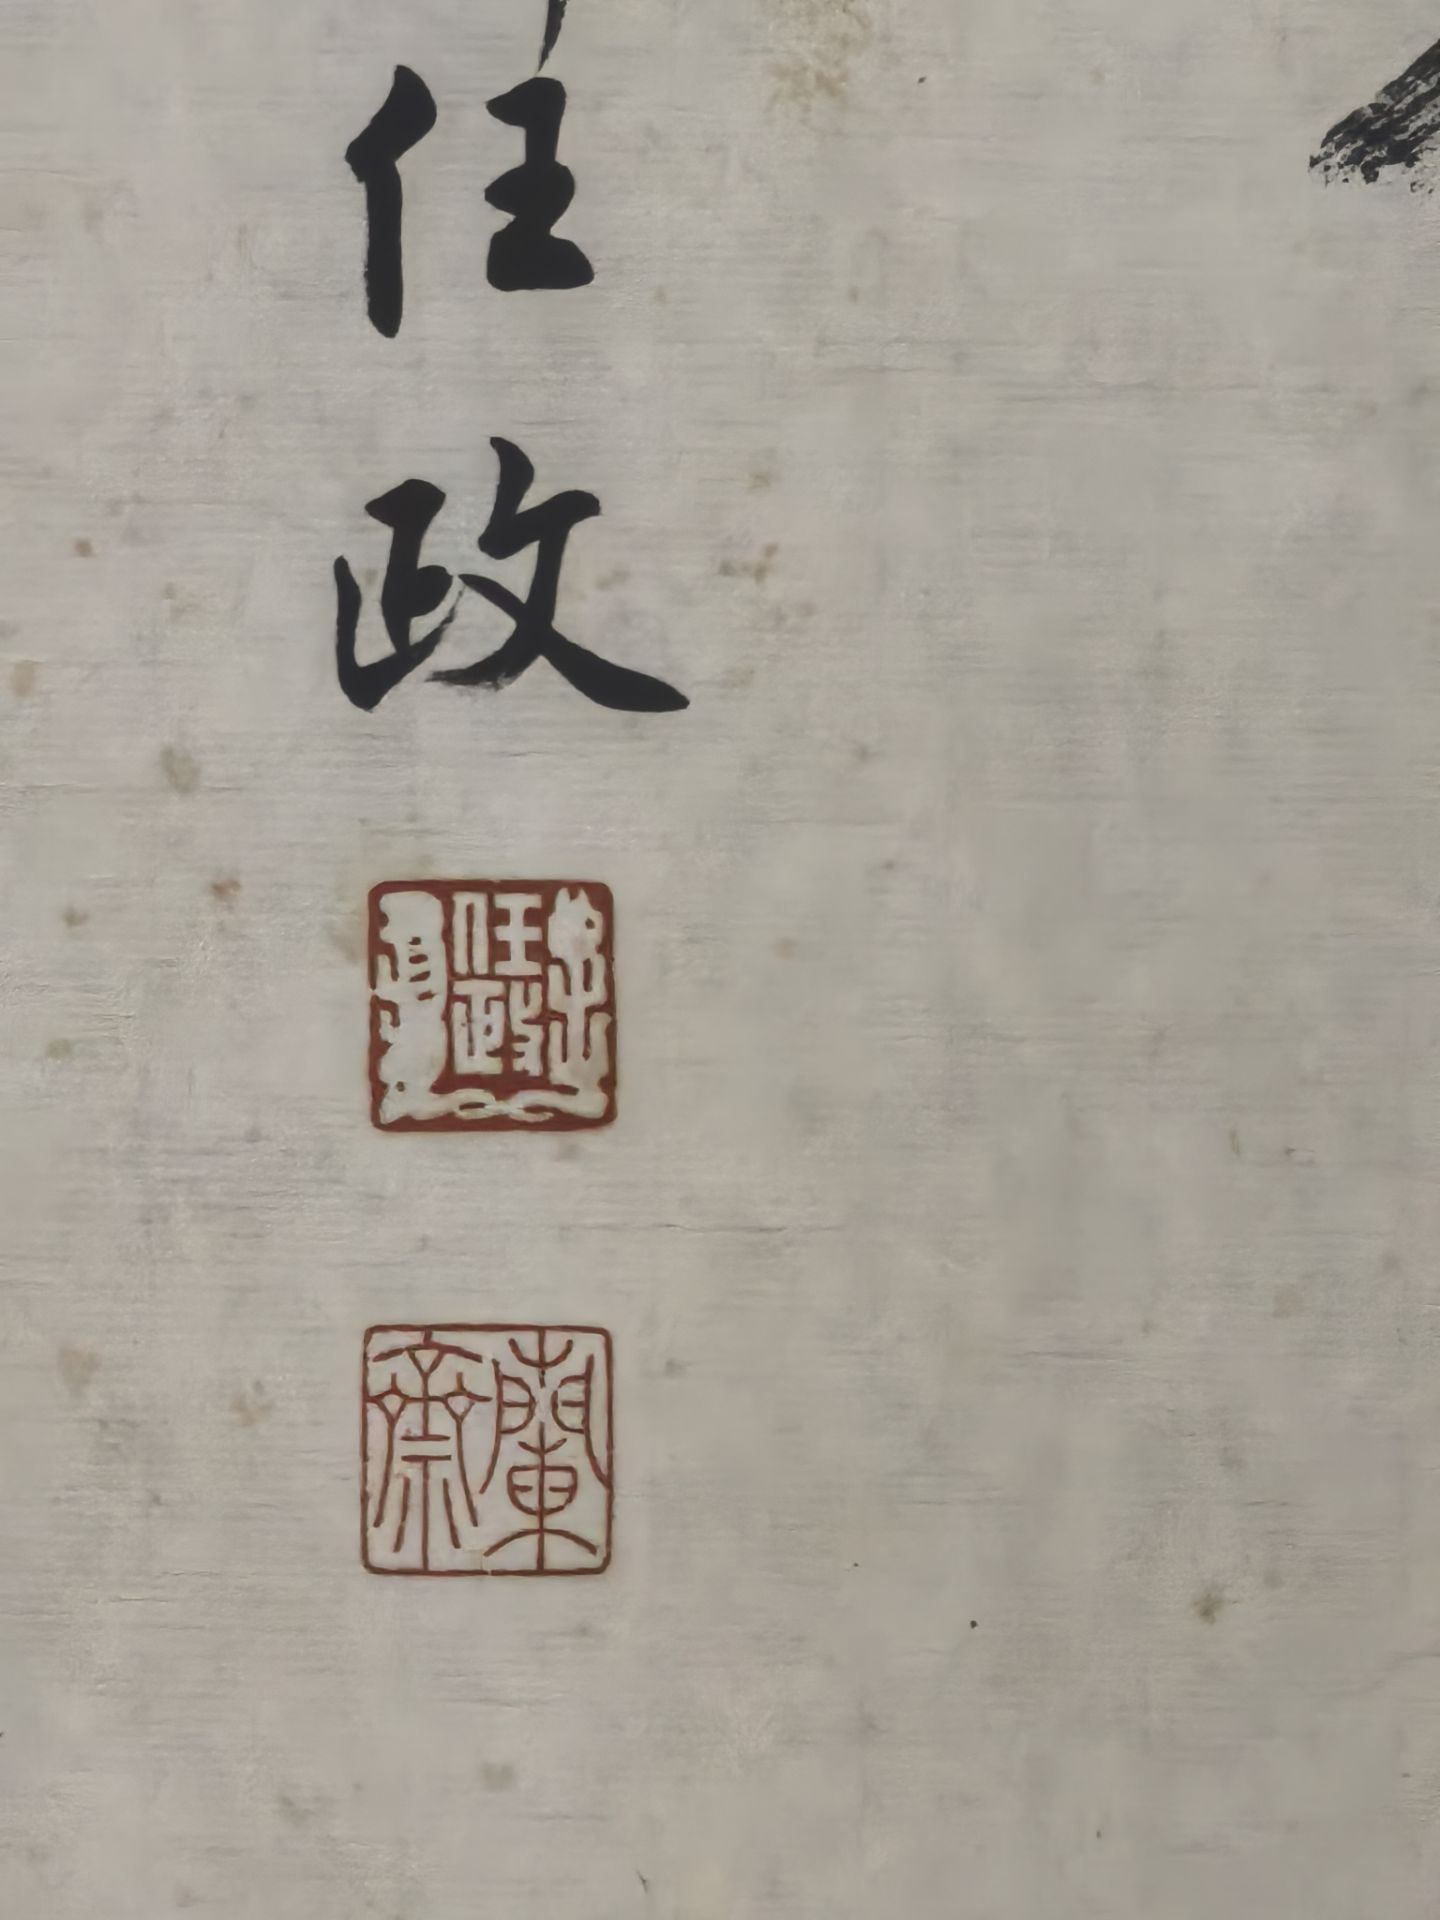 任政
任政
蘭齋